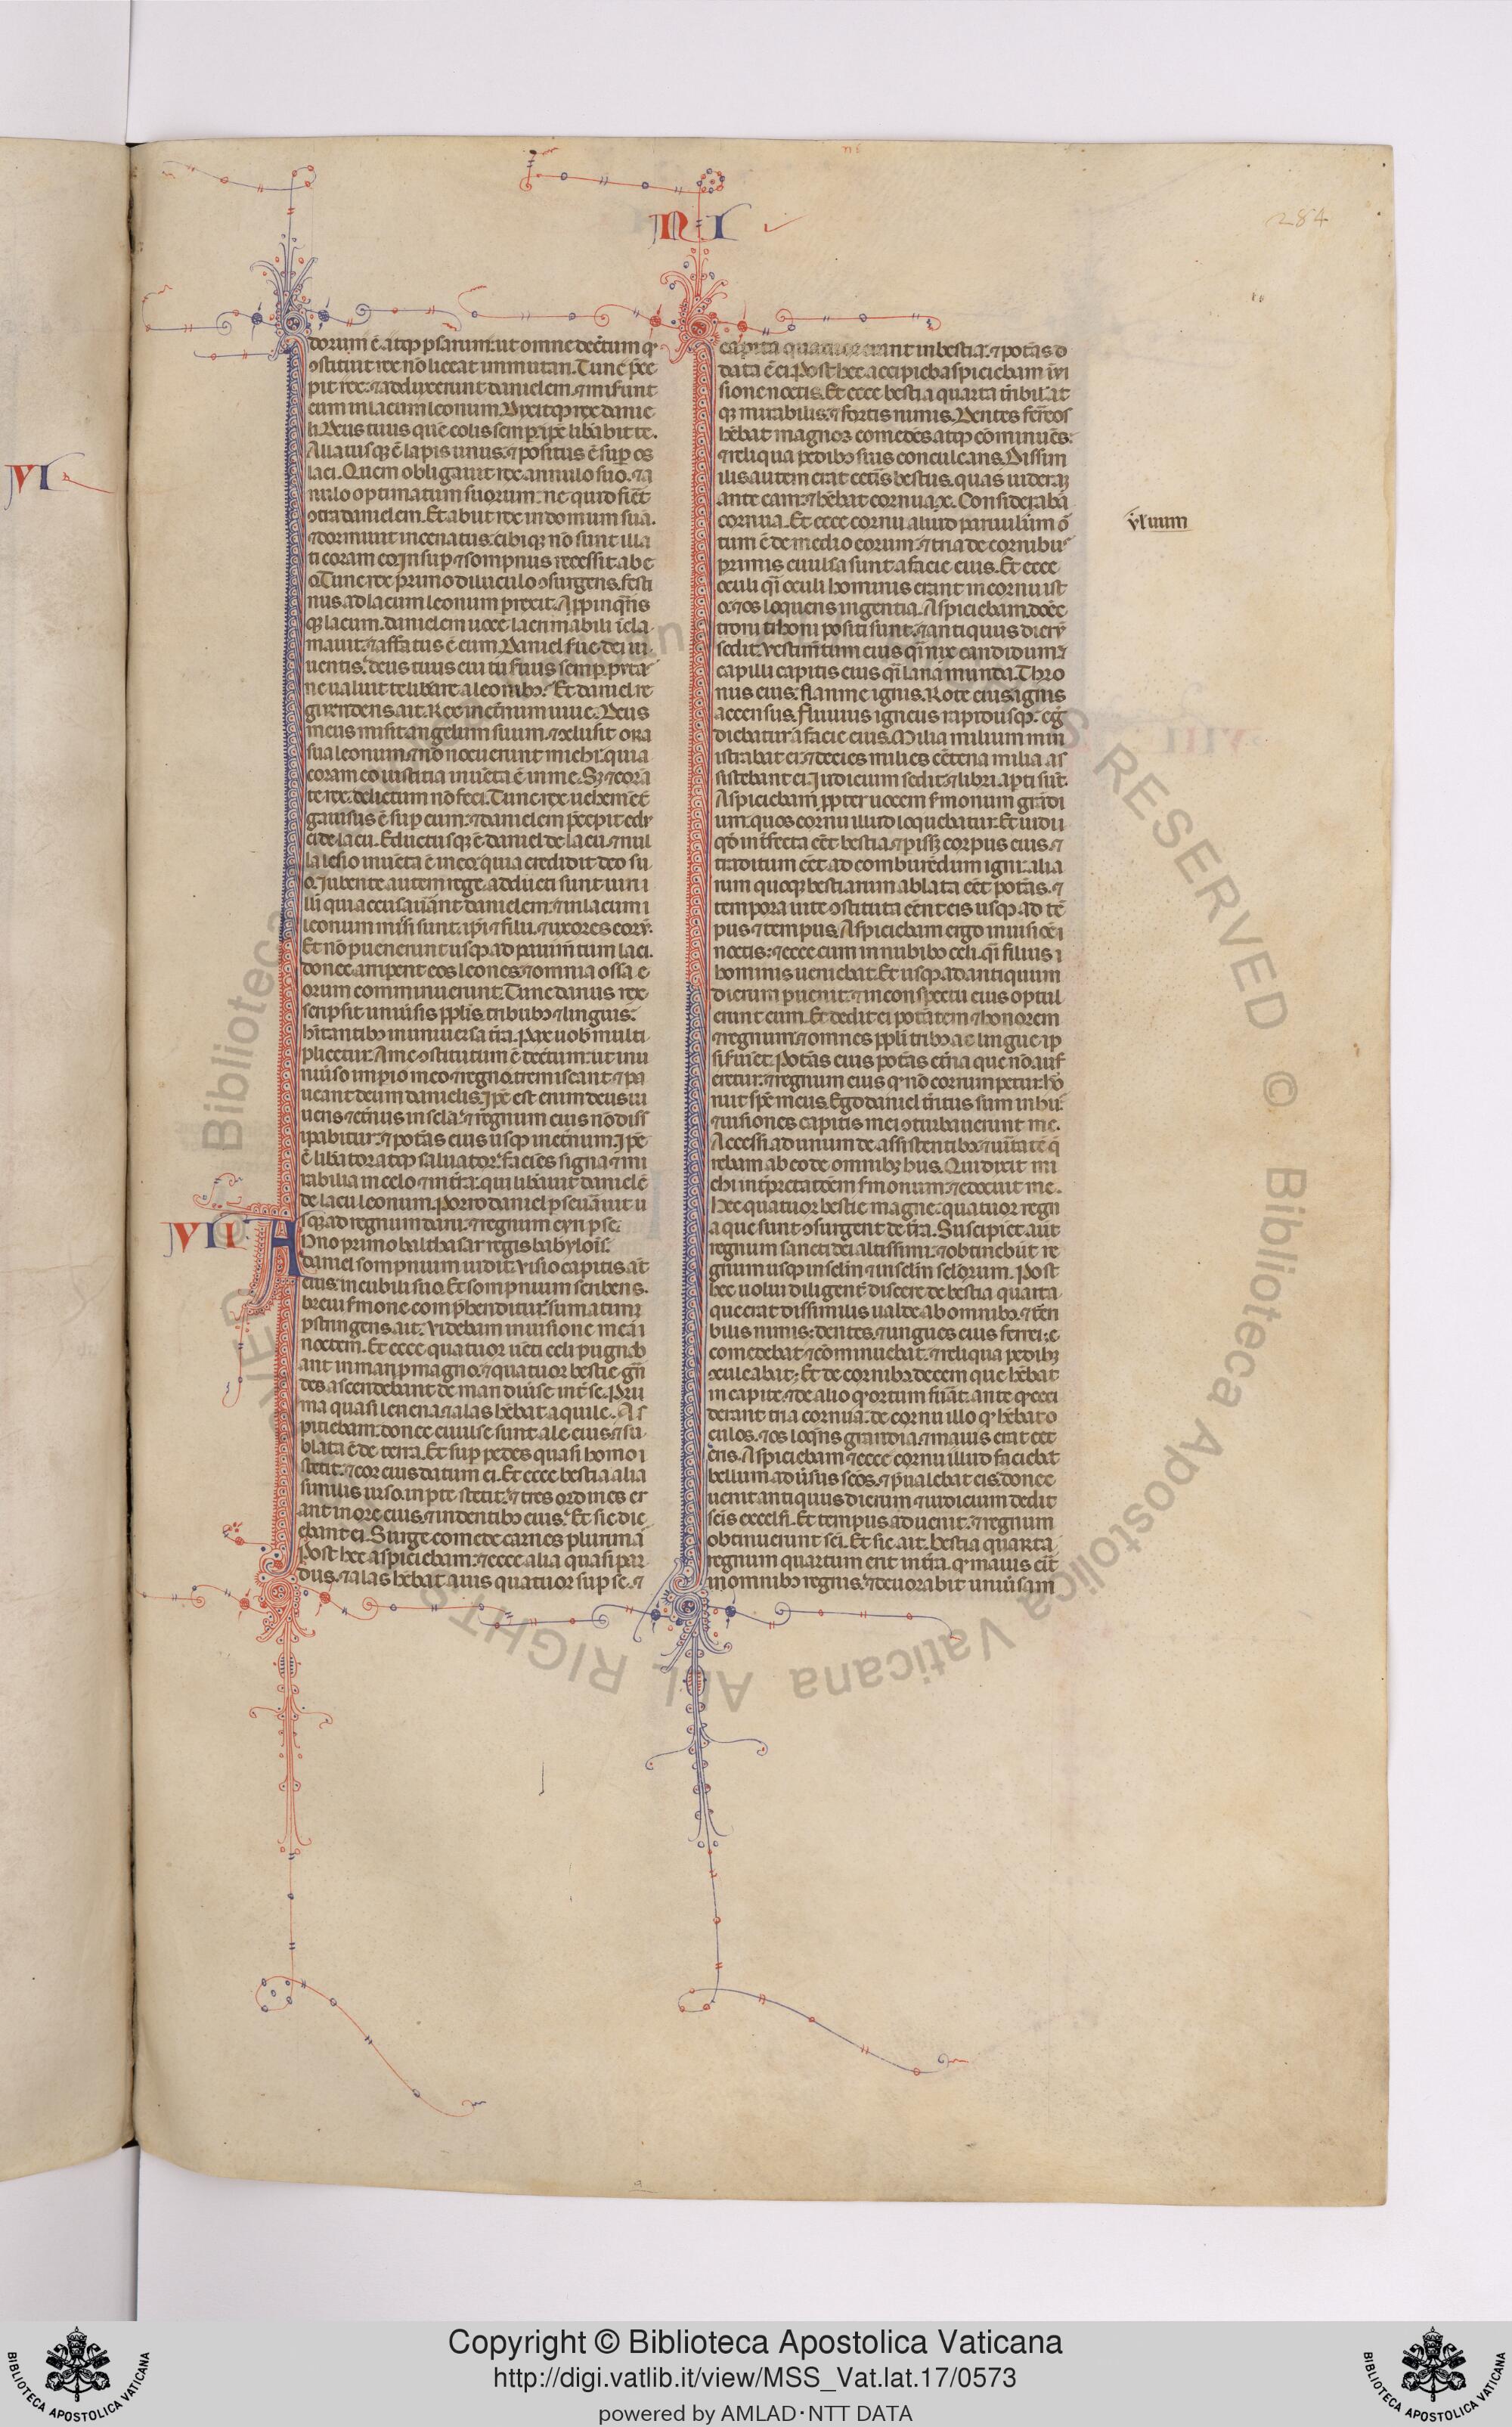 N I
284
dorum ē. atqꝫ ꝑsarum: ut omne decr̄tum qͦ
ɔstituit rex nō liceat inmutari. Tunc p̄ce
pit rex: ⁊ adduxerunt danielem. ⁊ miserunt
eum in lacum leonum. Dixitqꝫ rex danie
li. Deus tuus quē colis semꝑ: ip̄e lib̄abit te.
Allatusqꝫ ē lapis unus: ⁊ positus ē suꝑ os
laci. Quem obligauit rex annulo suo. ⁊ a
nulo optimatum suorum: ne quid fier̄
ɔtra danielem. Et abiit rex in domum suā.
⁊ dormiuit incenatus: cibiqꝫ nō sunt illa
ti coram eo. Insuꝑ ⁊ sompnus recessit ab e
o. Tunc rex primo diluculo ɔsurgens. festi
nus ad lacum leonum prexit. Appinq̄ns
qꝫ lacum. danielem uoce lacrimabili īcla
mauit: ⁊ affatus ē eum. Daniel s̄ue dei ui
uentis: deus tuus cui tu s̄uis semꝑ. puta
ne ualuit te lib̄are a leonibꝫ. Et daniel re
gi rn̄dens ait. Rex in et̄num uiue. Deus
meus misit angelum suum. ⁊ ɔclusit ora
sua leonum: ⁊ nō nocuerunt michi: quia
coram eo iustitia inuēta ē in me. Sꝫ ⁊ corā
te rex. delictum nō feci. Tunc rex uehemēt̄
gauisus ē suꝑ eum: ⁊ danielem p̄cepit edu
ci de lacu. Eductusqꝫ ē daniel de lacu. ⁊ nul
la lesio inuēta ē in eo: quia credidit deo su
o. Jubente autem rege. adducti sunt uiri i
lli qui accusau̅ant danielem: ⁊ in lacum i
leonum missi sunt. ip̄i ⁊ filii. ⁊ uxores eorꝝ.
Et nō ꝑuenerunt usqꝫ ad pauim̄tum laci.
donec arriperent eos leones: ⁊ omnia ossa e
orum comminuerunt. Tunc darius rex
scripsit uniu̅sis ppl̄is. tribubꝫ ⁊ linguis:
hīt̄antibꝫ in uniuersa t̄ra. Pax uob̄ multi
plicetur. A me ɔstitutum ē decr̄tum: ut in u
niu̅so imꝑio meo ⁊ regno. tremiscant ⁊ pa
ueant deum danielis. Ip̄e est enim deus ui
uens ⁊ et̄nus in sc̄la: ⁊ regnum eius nō diss
ipabitur: ⁊ potas̄ eius usqꝫ in et̄num. Ip̄e
ē lib̄ator atqꝫ saluator: faciēs signa ⁊ mi
rabilia in celo ⁊ in t̄ra: qui lib̄auit danielē
de lacu leonum. Porro daniel ꝑseu̅auit u
sqꝫ ad regnum darii: ⁊ regnum cyri ꝑse.
VII Anno primo balthasar regis babylois̄.
daniel sompnium uidit. Visio capitis at̄
eius. in cubili suo. Et sompnium scribens.
breui s̄mone comp̄hendit: sūmatimqꝫ
ꝑstringens. ait. Videbam in uisione mea i
noctem. Et ecce quatuor uēti celi pugnab
ant in mari magno: ⁊ quatuor bestie grā
des ascendebant de mari diu̅se int̄ se. Pri
ma quasi leena: ⁊ alas hēbat aquile. As
piciebam: donec euulse sunt ale eius: ⁊ su
blata ē de terra. Et suꝑ pedes quasi homo i
stetit: ⁊ cor eius datum ei. Et ecce bestia alia
similis urso. in ꝑte stetit: ⁊ tres ordines er
ant in ore eius. ⁊ in dentibꝫ eius: Et sic dic
ebant ei. Surge comede carnes plurima.
Post hec aspiciebam: ⁊ ecce alia quasi par
dus. ⁊ alas hēbat auis quatuor suꝑ se. ⁊
capita quatuor erant in bestia: ⁊ potas̄ d
data ē ei. Post hec accipieb aspiciebam ī ui
sione noctis. Et ecce bestia quarta t̄ribil̄ at
qꝫ mirabilis: ⁊ fortis nimis. Dentes ferreos
hēbat magnos: comedēs atqꝫ cominuēs:
⁊ reliqua pedibꝫ suis conculcans. Dissim
ilis autem erat cet̄is bestiis. quas uiderā
ante eam: ⁊ hēbat cornua .x. Considerabā
cornua. Et ecce cornu aliud paruulum o
tum ē de medio eorum: ⁊ tria de cornibus
primis euulsa sunt a facie eius. Et ecce
oculi qi̅ oculi hominis erant in cornu ist
o: ⁊ os loquens ingentia. Aspiciebam. donec
troni thoni positi sunt: ⁊ antiquus dierꝝ
sedit. Vestim̄tum eius qi̅ nix candidum: ⁊
capilli capitis eius qi̅ lana munda. Thro
nus eius: flamme ignis. Rote eius: ignis
accensus. Fluuius igneus rapidusqꝫ: eg̅
diebatur a facie eius. Milia milium min
istrabat ei: ⁊ decies milies cētena milia as
sistebant ei. Judicium sedit: ⁊ libri aꝑti sūt.
Aspiciebam ꝓpter uocem s̄monum grādi
um: quos cornu illud loquebatur. Et uidi i
qđ int̄fecta eēt bestia: ⁊ ꝑisset corpus eius. ⁊
traditum eēt ad comburēdum igni: alia
rum quoqꝫ bestiarum ablata eēt potas̄. ⁊
tempora uite ɔstituta eēnt eis usqꝫ ad tē
pus ⁊ tempus. Aspiciebam ergo in uisiōe i
noctis: ⁊ ecce cum in nubibꝫ celi. qi̅ filius i
hominis ueniebat. Et usqꝫ ad antiquum
dierum ꝑuenit: ⁊ in conspectu eius optul
erunt eum. Et dedit ei potatem ⁊ honorem
⁊ regnum: ⁊ omnes ppl̄i tribꝫ ac lingue: ip̄
si s̄uient. Potas̄ eius potas̄ et̄na que nō auf
eretur: ⁊ regnum eius qͦ nō corrumpetur. Hor
ruit sp̄c meus. Ego daniel t̄ritus sum in hiis:
⁊ uisiones capitis mei ɔturbauerunt me.
Accessi ad unum de assistentibꝫ: ⁊ ueritatē q̄
rebam ab eo de omnibꝫ hiis. Qui dixit mi
chi int̄pretatōem s̄monum: ⁊ edocuit me.
Hec quatuor bestie magne: quatuor regn
a que sunt ɔsurgent de t̄ra. Suscipiet aut̄
regnum sancti dei altissimi: ⁊ obtinebūt re
gnum usqꝫ in sc̄lm ⁊ in sc̄lm sc̄lorum. Post
hec uolui diligent̄ discere de bestia quarta
que erat dissimilis ualde ab omnibꝫ. ⁊ t̄rri
bilis nimis: dentes ⁊ ungues eius ferrei: e
comedebat ⁊ cōminuebat. ⁊ reliqua pedibꝫ
ɔculcabat: Et de cornibꝫ decem que hēbat
in capite. ⁊ de alio qͦ ortum fu̅at: ante qͦ ceci
derant tria cornua: de cornu illo qͦ hēbat o
culos. ⁊ os loq̄ns grandia. ⁊ maius erat cet
er̄is. Aspiciebam ⁊ ecce cornu illud faciebat
bellum adu̅sus sc̄os. ⁊ p̄ualebat eis. donec
uenit antiquus dierum ⁊ iudicium dedit
sc̄is excelsi. Et tempus aduenit. ⁊ regnum
obtinuerunt sc̄i. Et sic ait. bestia quarta
regnum quartum erit in t̄ra. qͦ maius erit
in omnibꝫ regnis. ⁊ deuorabit uniu̅sam
VI
Copyright © Biblioteca Apostolica Vaticana
http://digi.vatlib.it/view/MSS_Vat.lat.17/0573
powered by AMLAD·NTT DATA
BIBLIOTECA APOSTOLICA VATICANA
BIBLIOTECA APOSTOLICA VATICANA